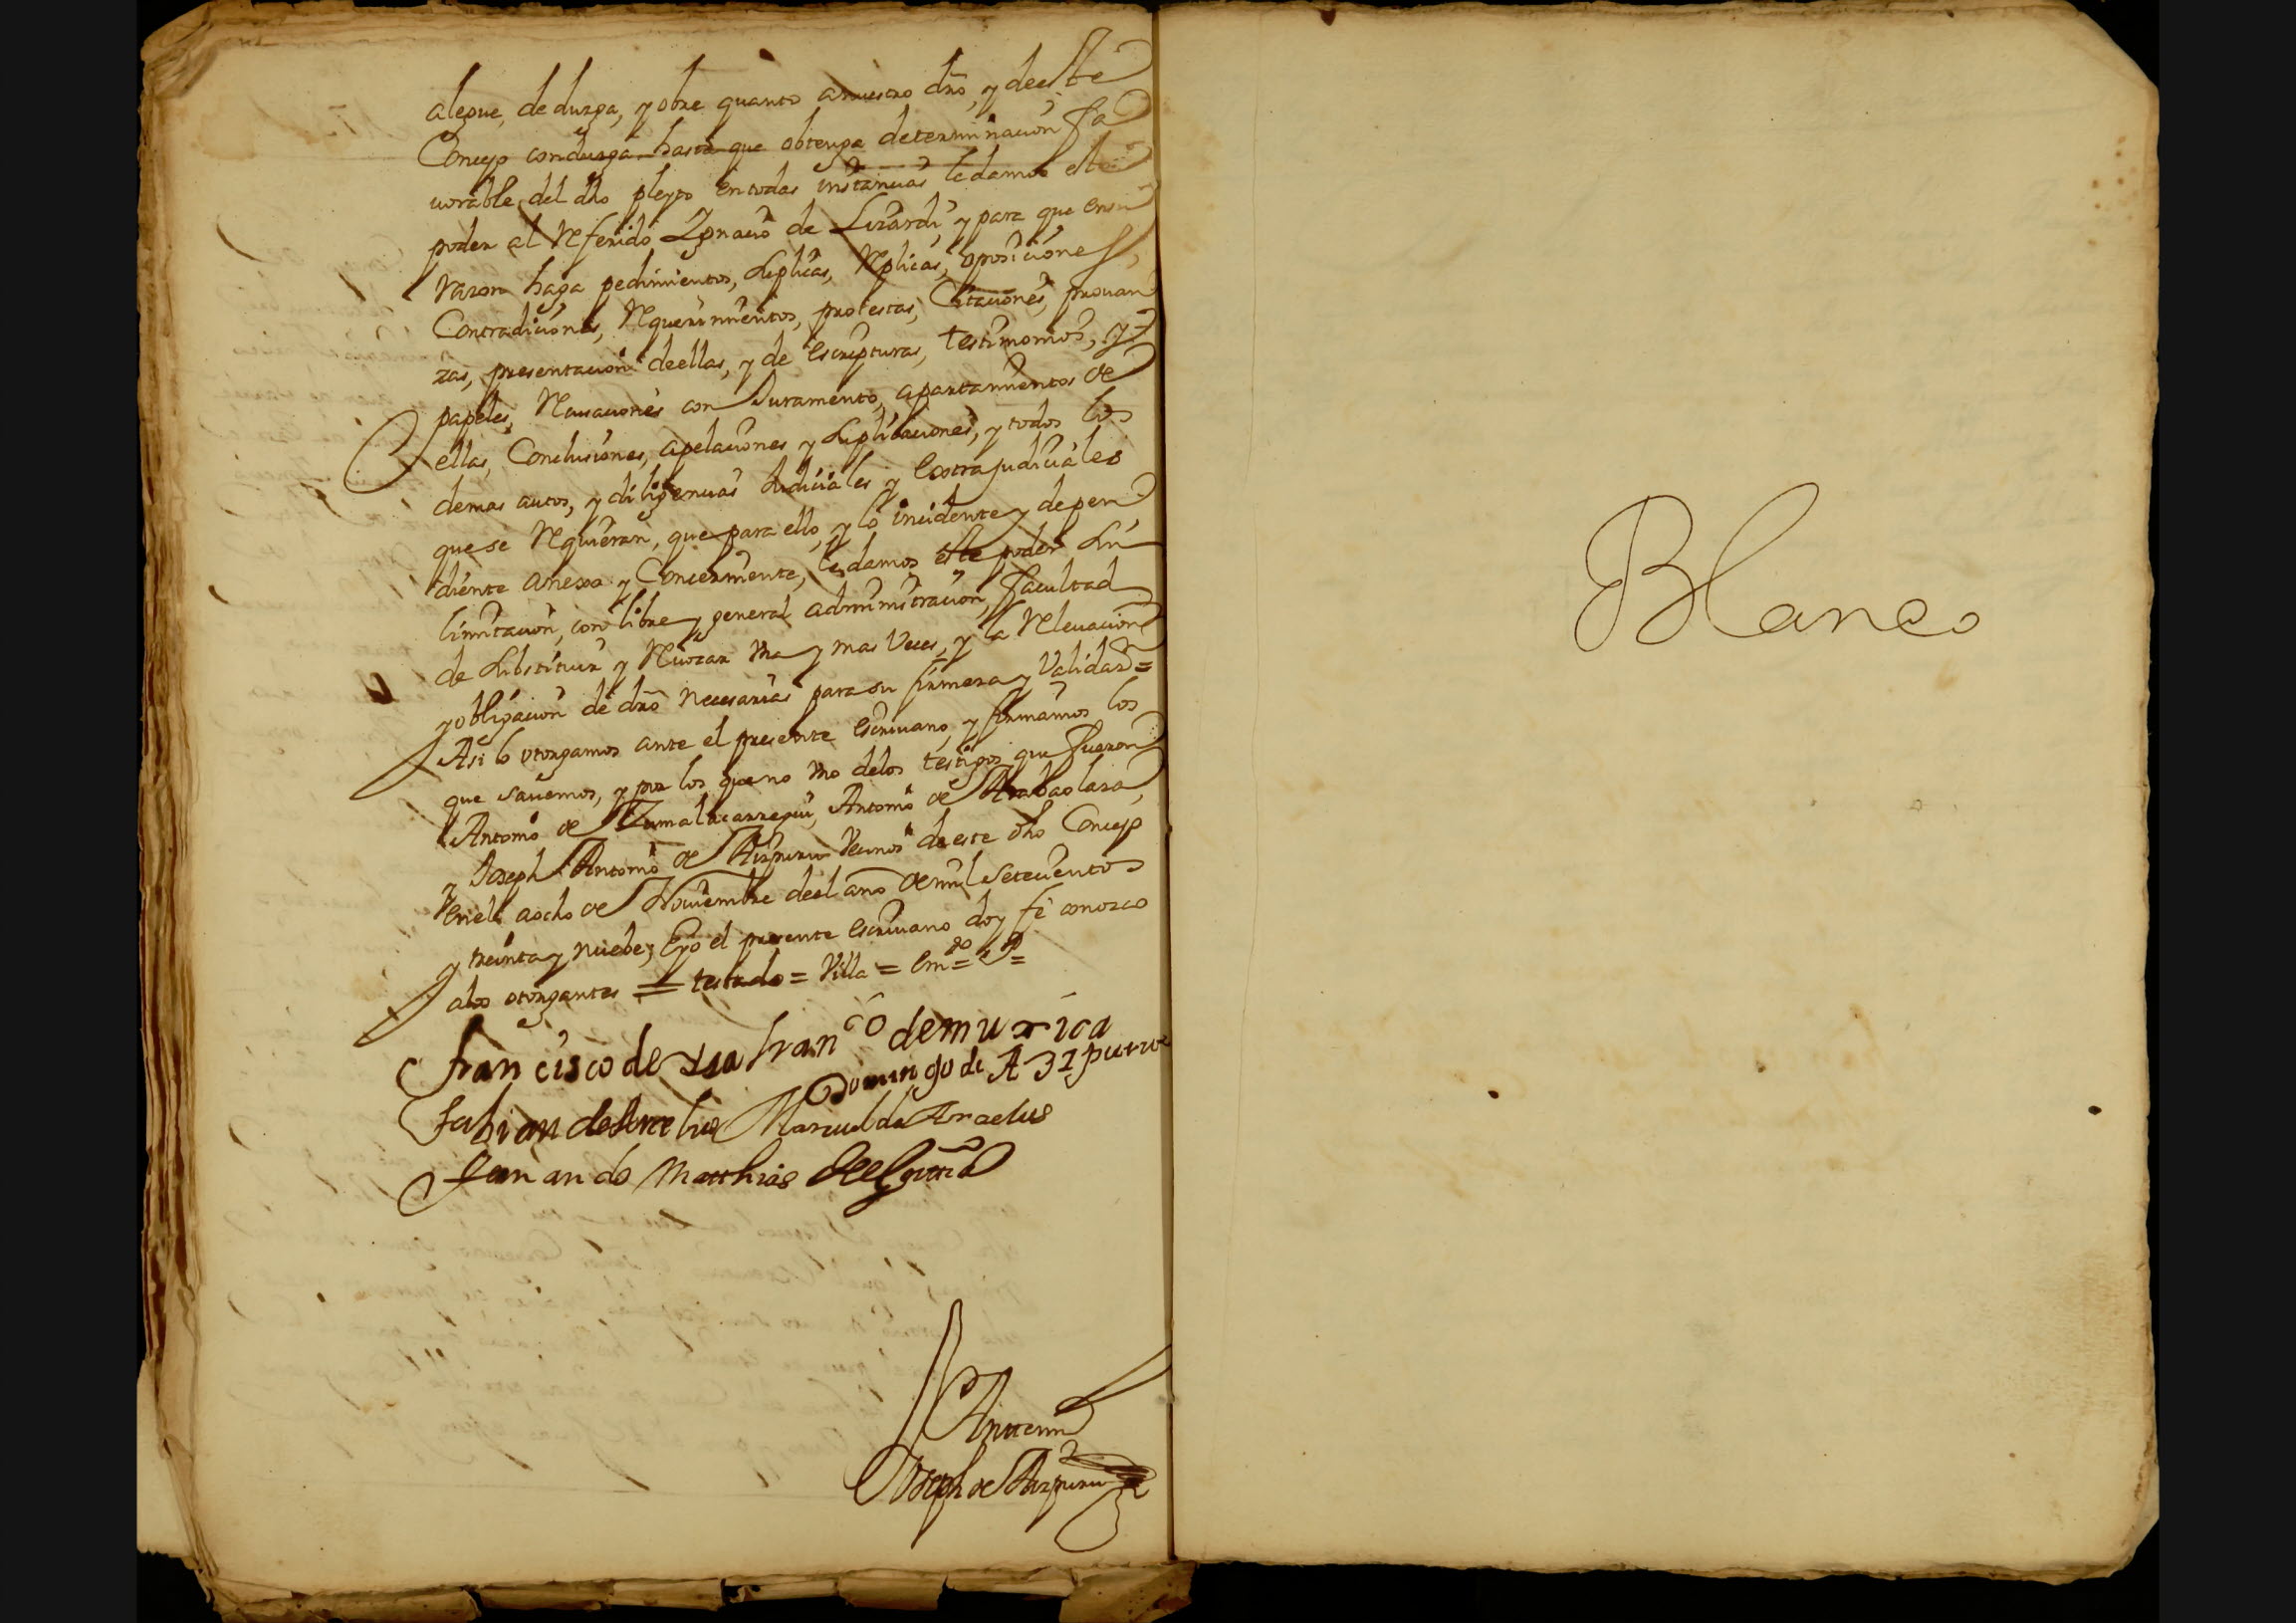 alegue, deduzga, y obre quanto a nuestro dro, y de este
Concejo conduzga hasta que obtenga determinacion fa
uorable del dho pleyto en todas instancias le damos este
poder al Referido Ygnacio de Lizardi, y para que en su
razon haga pedimientos, suplicas, Replicas, oposiciones,
Contradiciones, Requerimientos, protestas, Citaciones, prouan
zas, presentacion de ellas, y de escripturas, testimonios, y
papeles, Recusaciones con Juramento, apartamientos de
ellas, Conclusiones, apelaciones y suplicaciones, y todos los
demas autos, y diligencias Judiciales y Extrajudiciales
que se Requieran, que para ello, y lo incidente y depen
diente anexo y Concerniente, le damos este poder sin
limitacion, con libre y general administracion, facultad
de substituir y Reuocar Vna y mas Veces, y la Releuacion
y obligacion de dro necesarias para su firmeza y Validad =
Asi lo otorgamos ante el presente escriuano, y firmamos los
que sauemos, y por los que no Vno de los testigos que fueron
Antonio de Zumalacarregui, Antonio de Arabaolaza,
y Joseph Antonio de Aizpuru Vecinos de este dho Concejo
en el a ocho de Nouiembre de el año de mil setecientos
y treinta y nuebe; E yo el presente escriuano doy fe conozco
a los otorgantes = testado = Villa = em.do =
Francisco de Fran.co de murica
Domingo de Azpurue
Fabian de Manuel de Araelus
Fernando Matthias de
Ante mi
Joseph de Aizpuru
Blanco